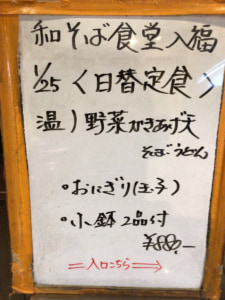 和そば食堂入福
1/25 〈日替定食〉
温)野菜かきあげ天
そば・うどん
・おにぎり(玉子)
・小鉢2品付
¥880.-
＝入口こちら⇒